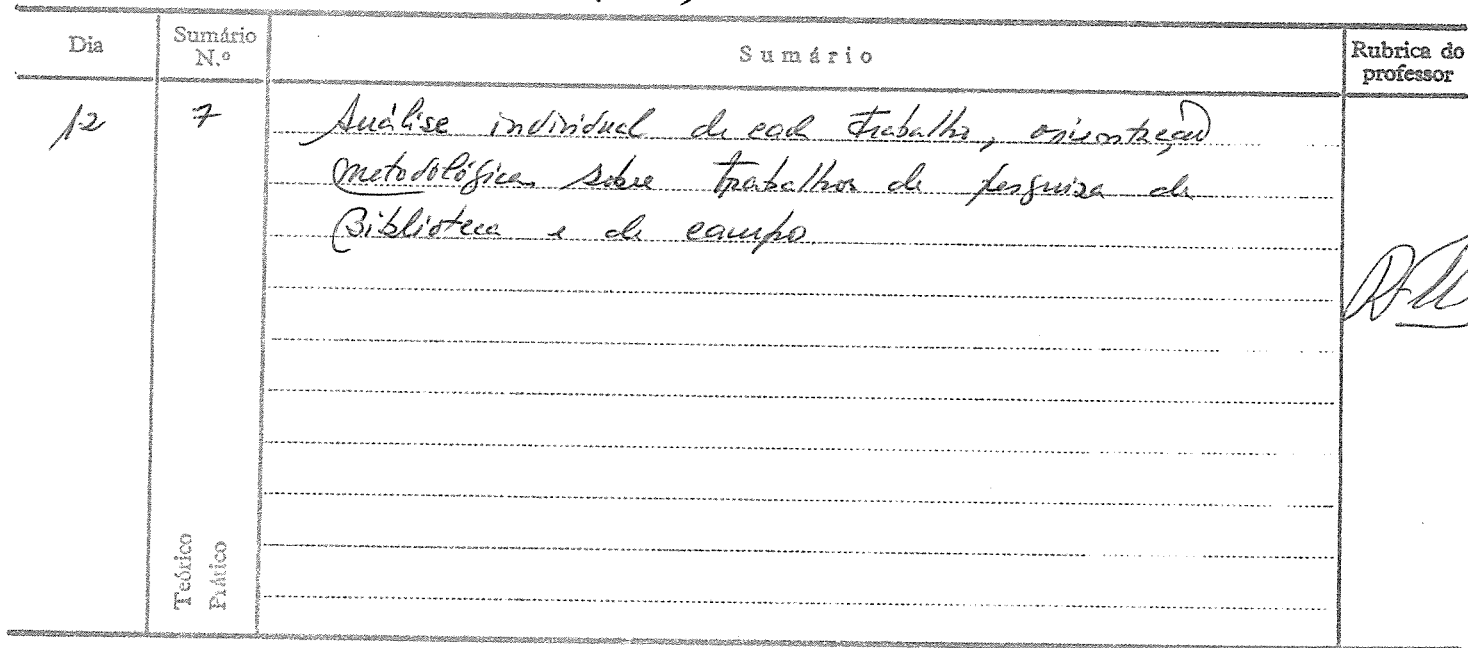 Dia
Sumário N.º
Sumário
Rubrica do professor
12
7
Análise individual de cada trabalho, orientação
metodológica sobre trabalhos de pesquiza de
Biblioteca e de campo.
Teórico
Prático